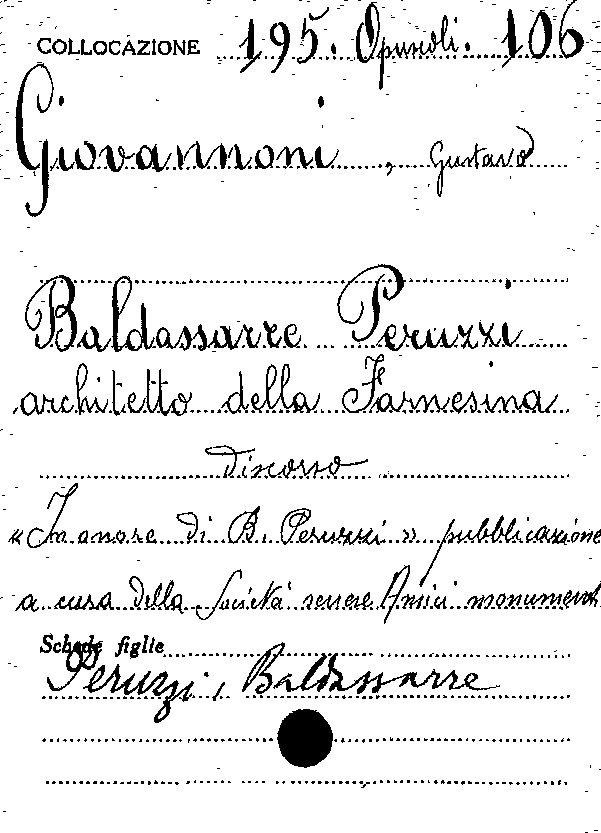 COLLOCAZIONE 195. Opuscoli. 106
Giovannoni, Gustavo
Baldassarre Peruzzi
architetto della Farnesina
Discorso
« In onore di B. Peruzzi » pubblicazione
a cura della Società senese Amici monumenti
Schede figlie
Peruzzi, Baldassarre